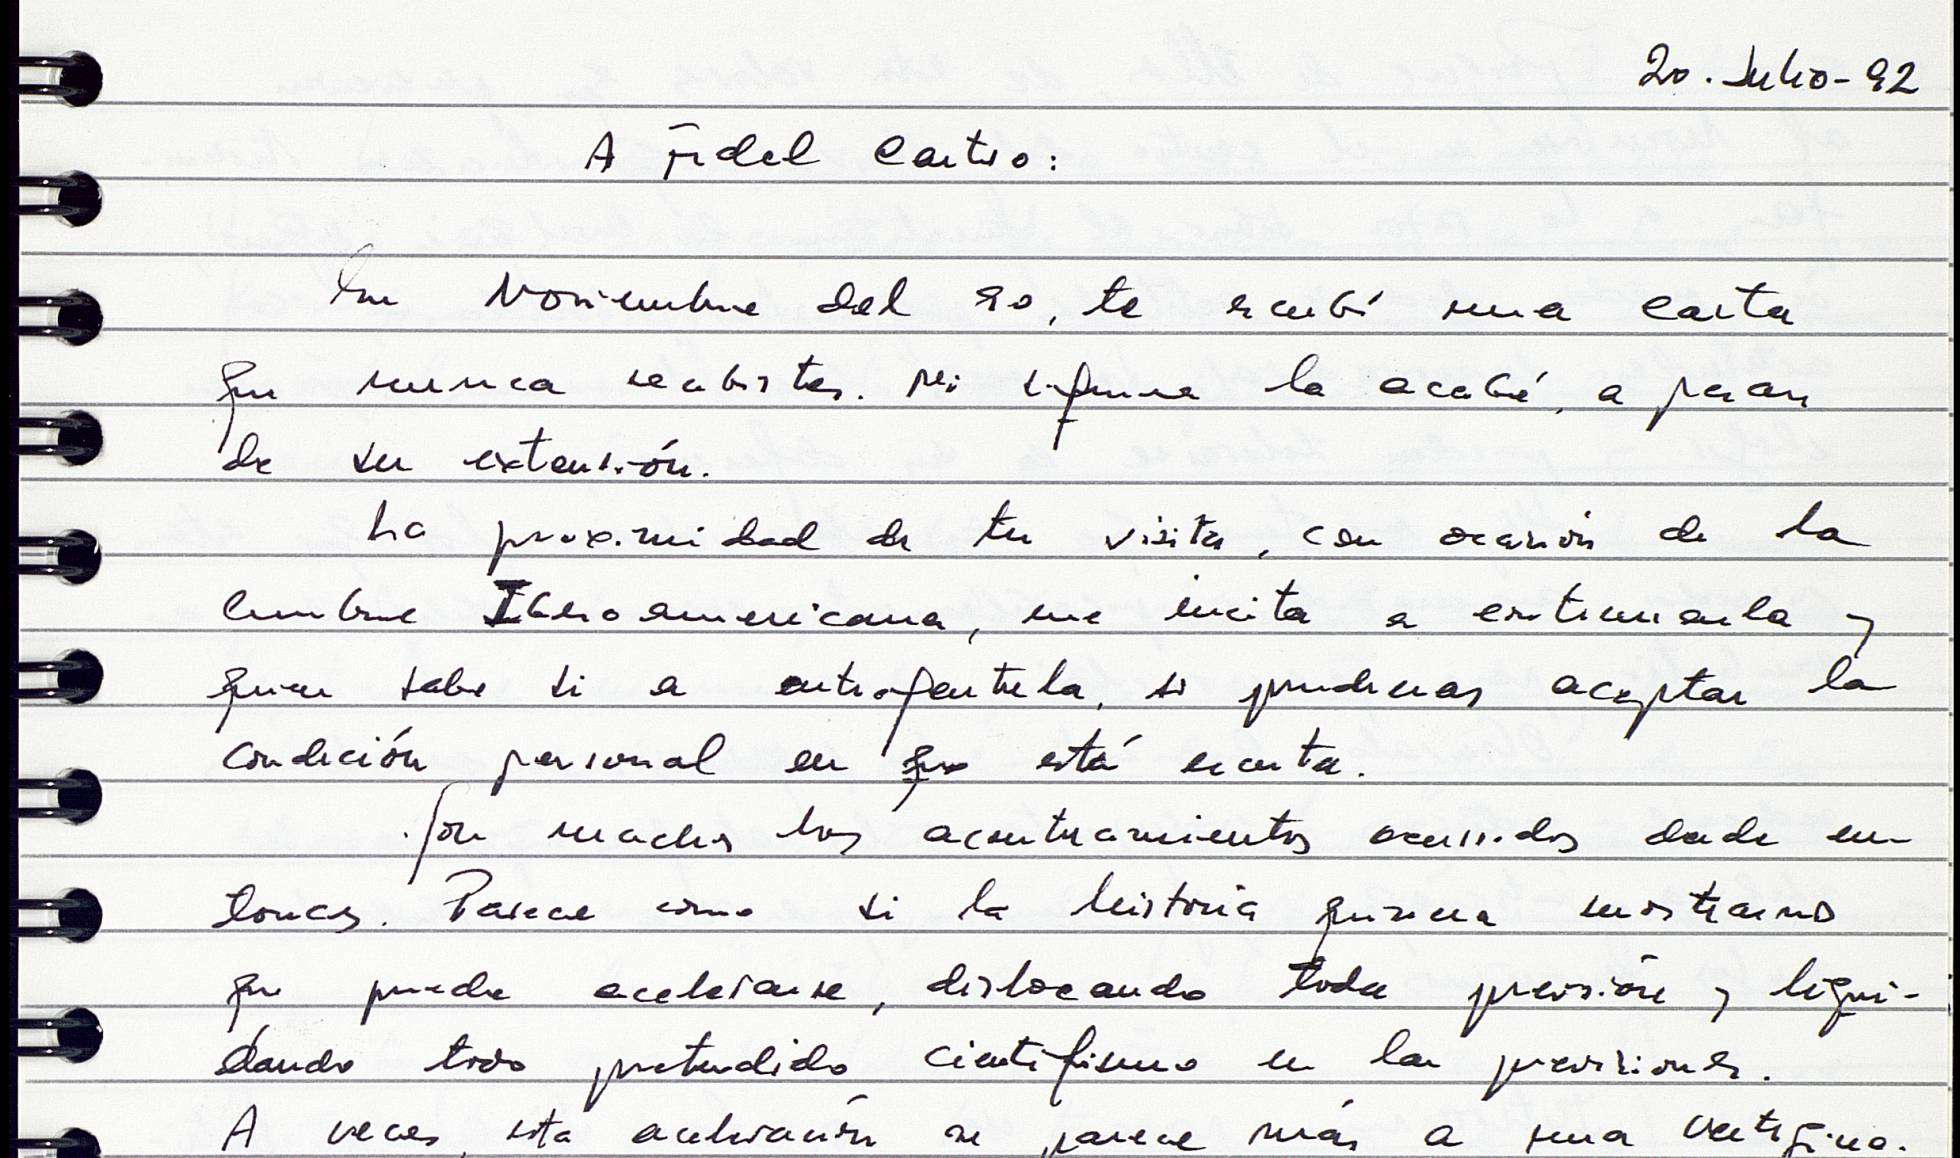 20. Julio-92
A Fidel Castro:
En Noviembre del 90, te escribí una carta
que nunca recibistes. Ni siquiera la acabé, a pesar
de su extensión.
La proximidad de tu visita, con ocasión de la
Cumbre Iberoamericana, me incita a continuarla y
quien sabe si a entregartela, si pudieras aceptar la
condición personal en que está escrita.
Son muchos los acontecimientos ocurridos desde en-
tonces. Parece como si la historia quisiera mostrarnos
que puede acelerarse, dislocando toda previsión y liqui-
dando todo pretendido cientifismo en las previsiones.
A veces, esta aceleración se parece más a una vertigino-